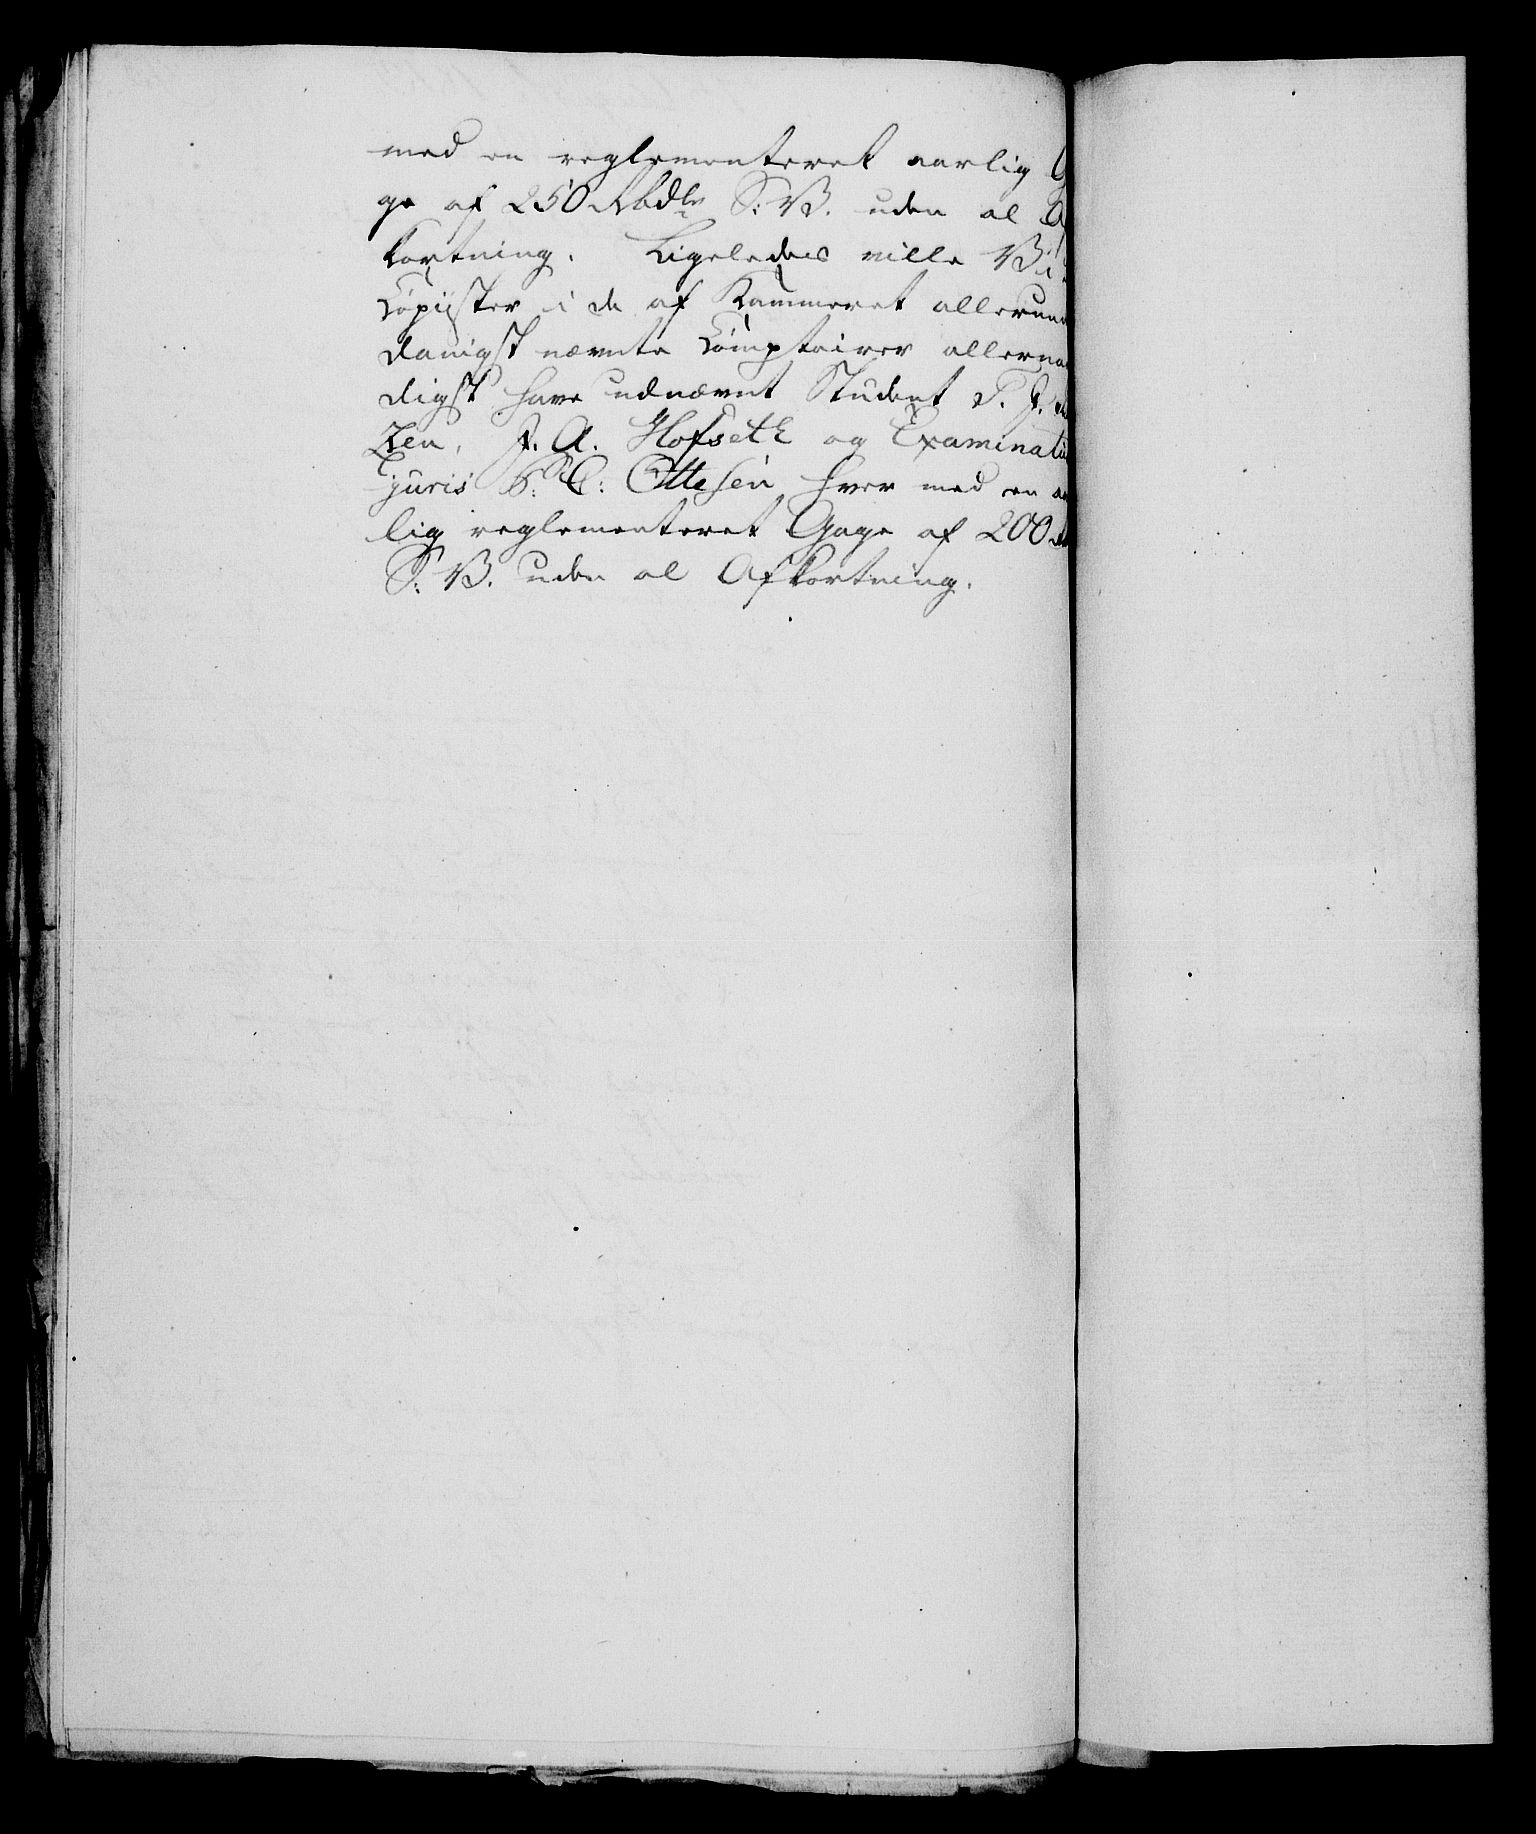 med en reglementeret aarlig G
ge af 250 Rbdlr S: V. uden al A
kortning. Ligeledes ville Vi
Copiister i de af Kammeret allerun
danigst nævnte Comptoirer allernaa
digst have udnævnt Student P. J.
zen, J. A. Hofseth og Examinatus
juris C: Ottesen hver med en aa
lig reglementeret Gage af 200
S: V. uden al Afkortning.